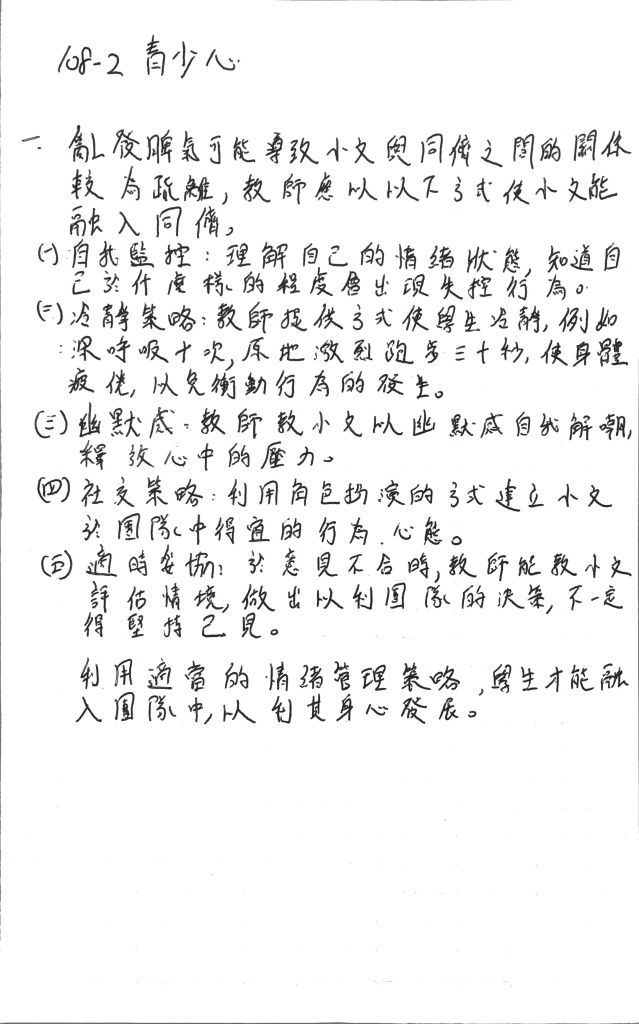 108-2 青少心
一、亂發脾氣可能導致小文與同儕之間的關係
較為疏離，教師應以以下方式使小文能
融入同儕。
(一)自我監控：理解自己的情緒狀態，知道自
己於什麼樣的程度會出現失控行為。
(二)冷靜策略：教師提供方式使學生冷靜，例如
：深呼吸十次，原地激烈跑步三十秒，使身體
疲倦，以免衝動行為的發生。
(三)幽默感：教師教小文以幽默感自我解嘲，
釋放心中的壓力。
(四)社交策略：利用角色扮演的方式建立小文
於團隊中得宜的行為、心態。
(五)適時妥協：於意見不合時，教師能教小文
評估情境，做出以利團隊的決策，不一定
得堅持己見。
利用適當的情緒管理策略，學生才能融
入團隊中，以利其身心發展。